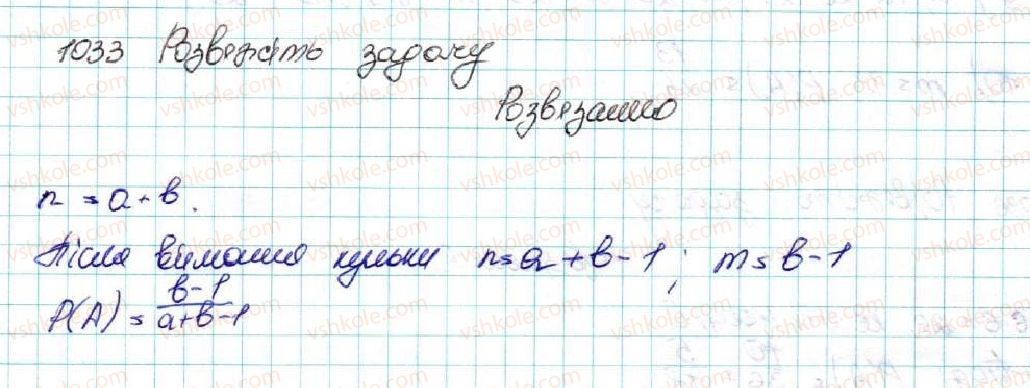 1033 Розвяжіть задачу
Розвязання
n = a + b.
Після виймання кульки n = a + b - 1; m = b - 1
P(A) = \frac{b-1}{a+b-1}